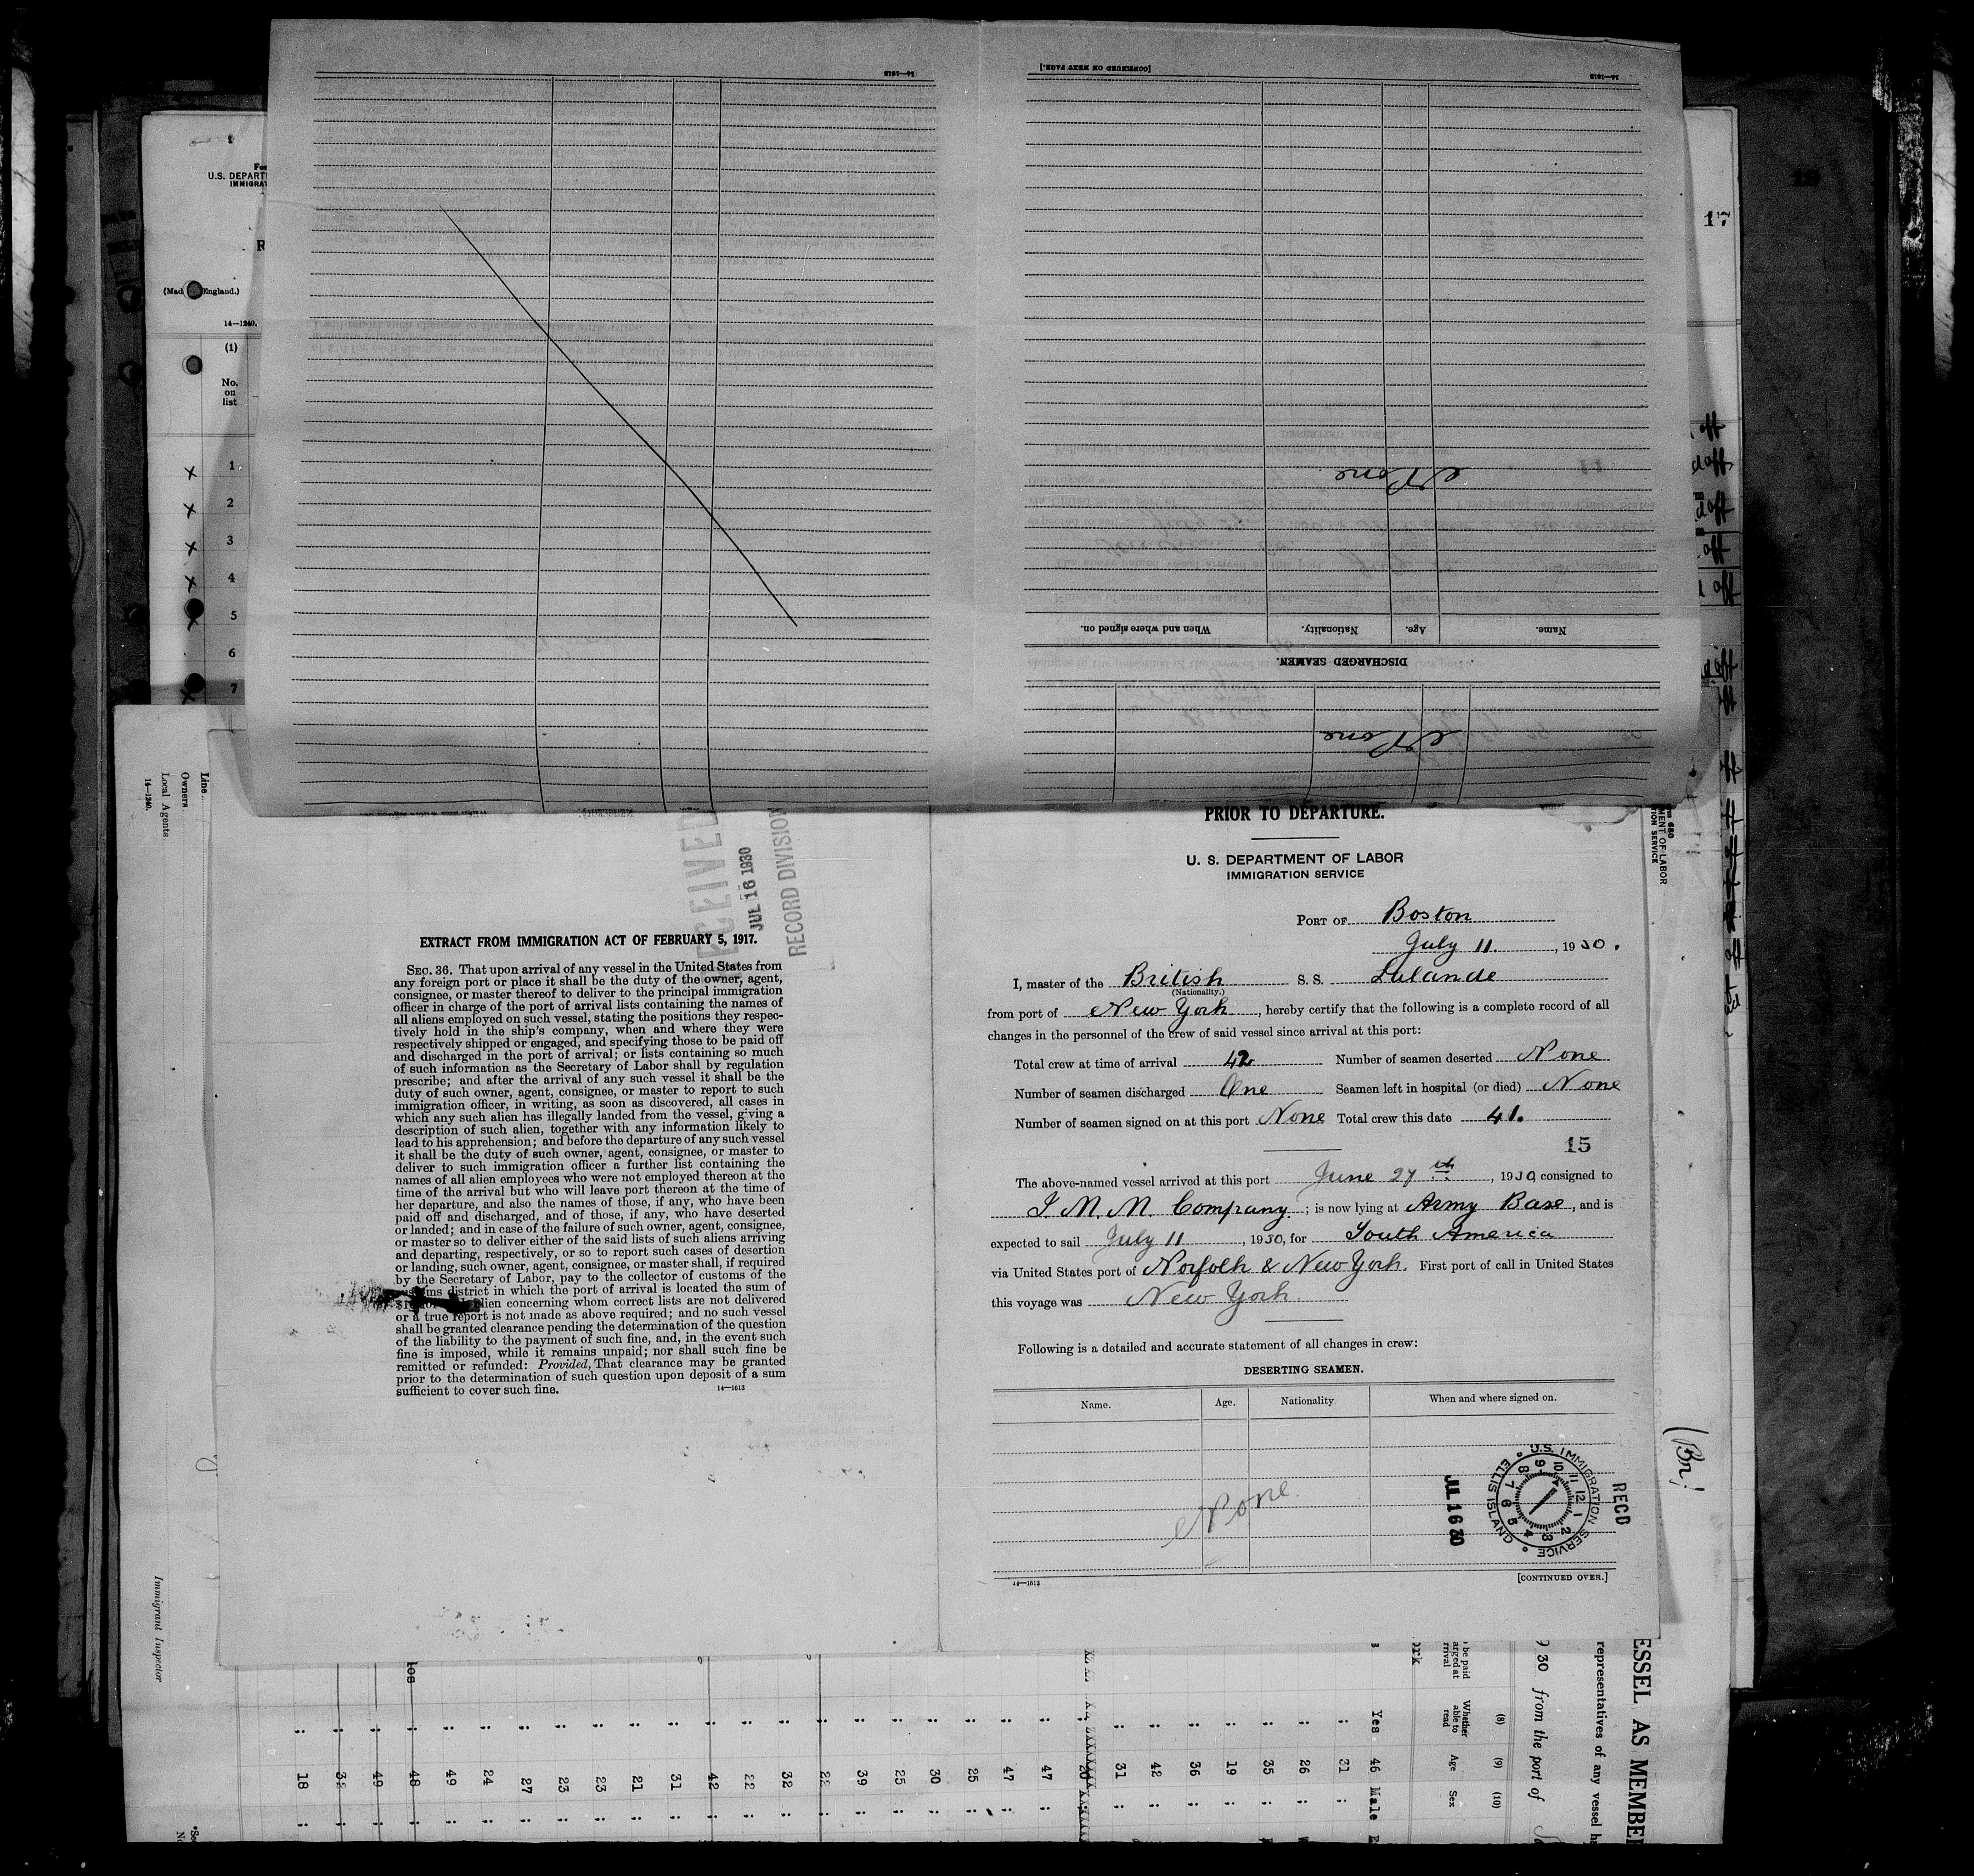 14—1613
[CONTINUED ON NEXT PAGE.]
14—1613
None
Name.
Age.
Nationality.
When and where signed on.
DISCHARGED SEAMEN.
None
U.S. DEPART
IMMIGRAT
(Mad England.)
14—1240.
(1)
No.
on
list
1
2
3
4
5
6
7
17
off
d off
d off
off
d off
Line
Owners
Local Agents
14—1240.
Immigrant Inspector
RECEIVED
JUL 16 1930
RECORD DIVISION
EXTRACT FROM IMMIGRATION ACT OF FEBRUARY 5, 1917.
SEC. 36. That upon arrival of any vessel in the United States from
any foreign port or place it shall be the duty of the owner, agent,
consignee, or master thereof to deliver to the principal immigration
officer in charge of the port of arrival lists containing the names of
all aliens employed on such vessel, stating the positions they respec-
tively hold in the ship's company, when and where they were
respectively shipped or engaged, and specifying those to be paid off
and discharged in the port of arrival; or lists containing so much
of such information as the Secretary of Labor shall by regulation
prescribe; and after the arrival of any such vessel it shall be the
duty of such owner, agent, consignee, or master to report to such
immigration officer, in writing, as soon as discovered, all cases in
which any such alien has illegally landed from the vessel, giving a
description of such alien, together with any information likely to
lead to his apprehension; and before the departure of any such vessel
it shall be the duty of such owner, agent, consignee, or master to
deliver to such immigration officer a further list containing the
names of all alien employees who were not employed thereon at the
time of the arrival but who will leave port thereon at the time of
her departure, and also the names of those, if any, who have been
paid off and discharged, and of those, if any, who have deserted
or landed; and in case of the failure of such owner, agent, consignee,
or master so to deliver either of the said lists of such aliens arriving
and departing, respectively, or so to report such cases of desertion
or landing, such owner, agent, consignee, or master shall, if required
by the Secretary of Labor, pay to the collector of customs of the
customs district in which the port of arrival is located the sum of
alien concerning whom correct lists are not delivered
or a true report is not made as above required; and no such vessel
shall be granted clearance pending the determination of the question
of the liability to the payment of such fine, and, in the event such
fine is imposed, while it remains unpaid; nor shall such fine be
remitted or refunded: Provided, That clearance may be granted
prior to the determination of such question upon deposit of a sum
sufficient to cover such fine.
14—1613
PRIOR TO DEPARTURE.
U. S. DEPARTMENT OF LABOR
IMMIGRATION SERVICE
PORT OF Boston
July 11. , 1930.
I, master of the British S. S. Lalande
(Nationality.)
from port of New York , hereby certify that the following is a complete record of all
changes in the personnel of the crew of said vessel since arrival at this port:
Total crew at time of arrival 42 Number of seamen deserted None
Number of seamen discharged One Seamen left in hospital (or died) None
Number of seamen signed on at this port None Total crew this date 41.
15
The above-named vessel arrived at this port June 27th , 1930, consigned to
I. M. M. Company. ; is now lying at Army Base , and is
expected to sail July 11 , 1930, for South America
via United States port of Norfolk & New York. First port of call in United States
this voyage was New York
Following is a detailed and accurate statement of all changes in crew:
DESERTING SEAMEN.
Name. Age. Nationality When and where signed on.
None
JUL 16 30
U.S. IMMIGRATION SERVICE
ELLIS ISLAND
1 2 3 4 5 6 7 8 9 10 11 12
RECD
14—1613
[CONTINUED OVER.]
680
MENT OF LABOR
TION SERVICE
(Br)
ESSEL AS MEMBE
representatives of any vessel
30 from the port of
(8) (9) (10)
Whether able to read
Age
Sex
Yes 46 Male
31
26
35
19
36
42
31
20
47
47
25
30
25
39
22
32
22
42
31
21
23
23
27
24
49
48
49
32
18